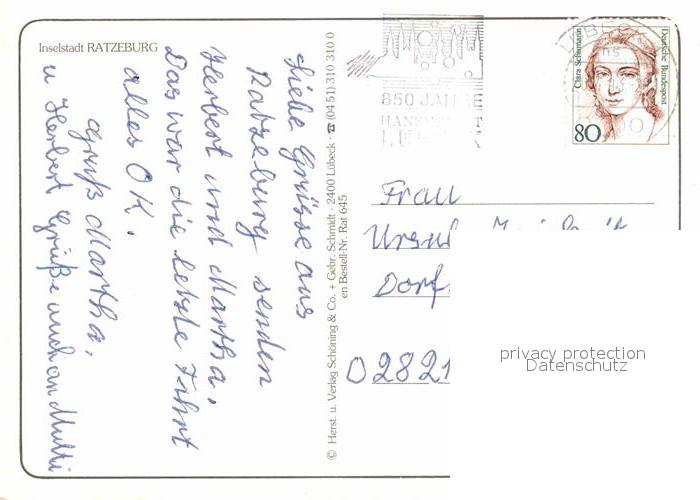 Inselstadt RATZEBURG
Liebe Grüsse aus
Ratzeburg senden
Herbert und Martha.
Das war die letzte Fahrt
alles OK.
Gruß Martha.
u Herbert Grüße auch an Mutti
© Herst. u. Verlag Schöning & Co. + Gebr. Schmidt · 2400 Lübeck · ☎ (04 51) 310 310 0
en Bestell-Nr. Rat 645
850 JAHRE
HANSESTADT
LÜBECK
Clara Schumann
Deutsche Bundespost
80
Frau
Dorf
D2821
privacy protection
Datenschutz